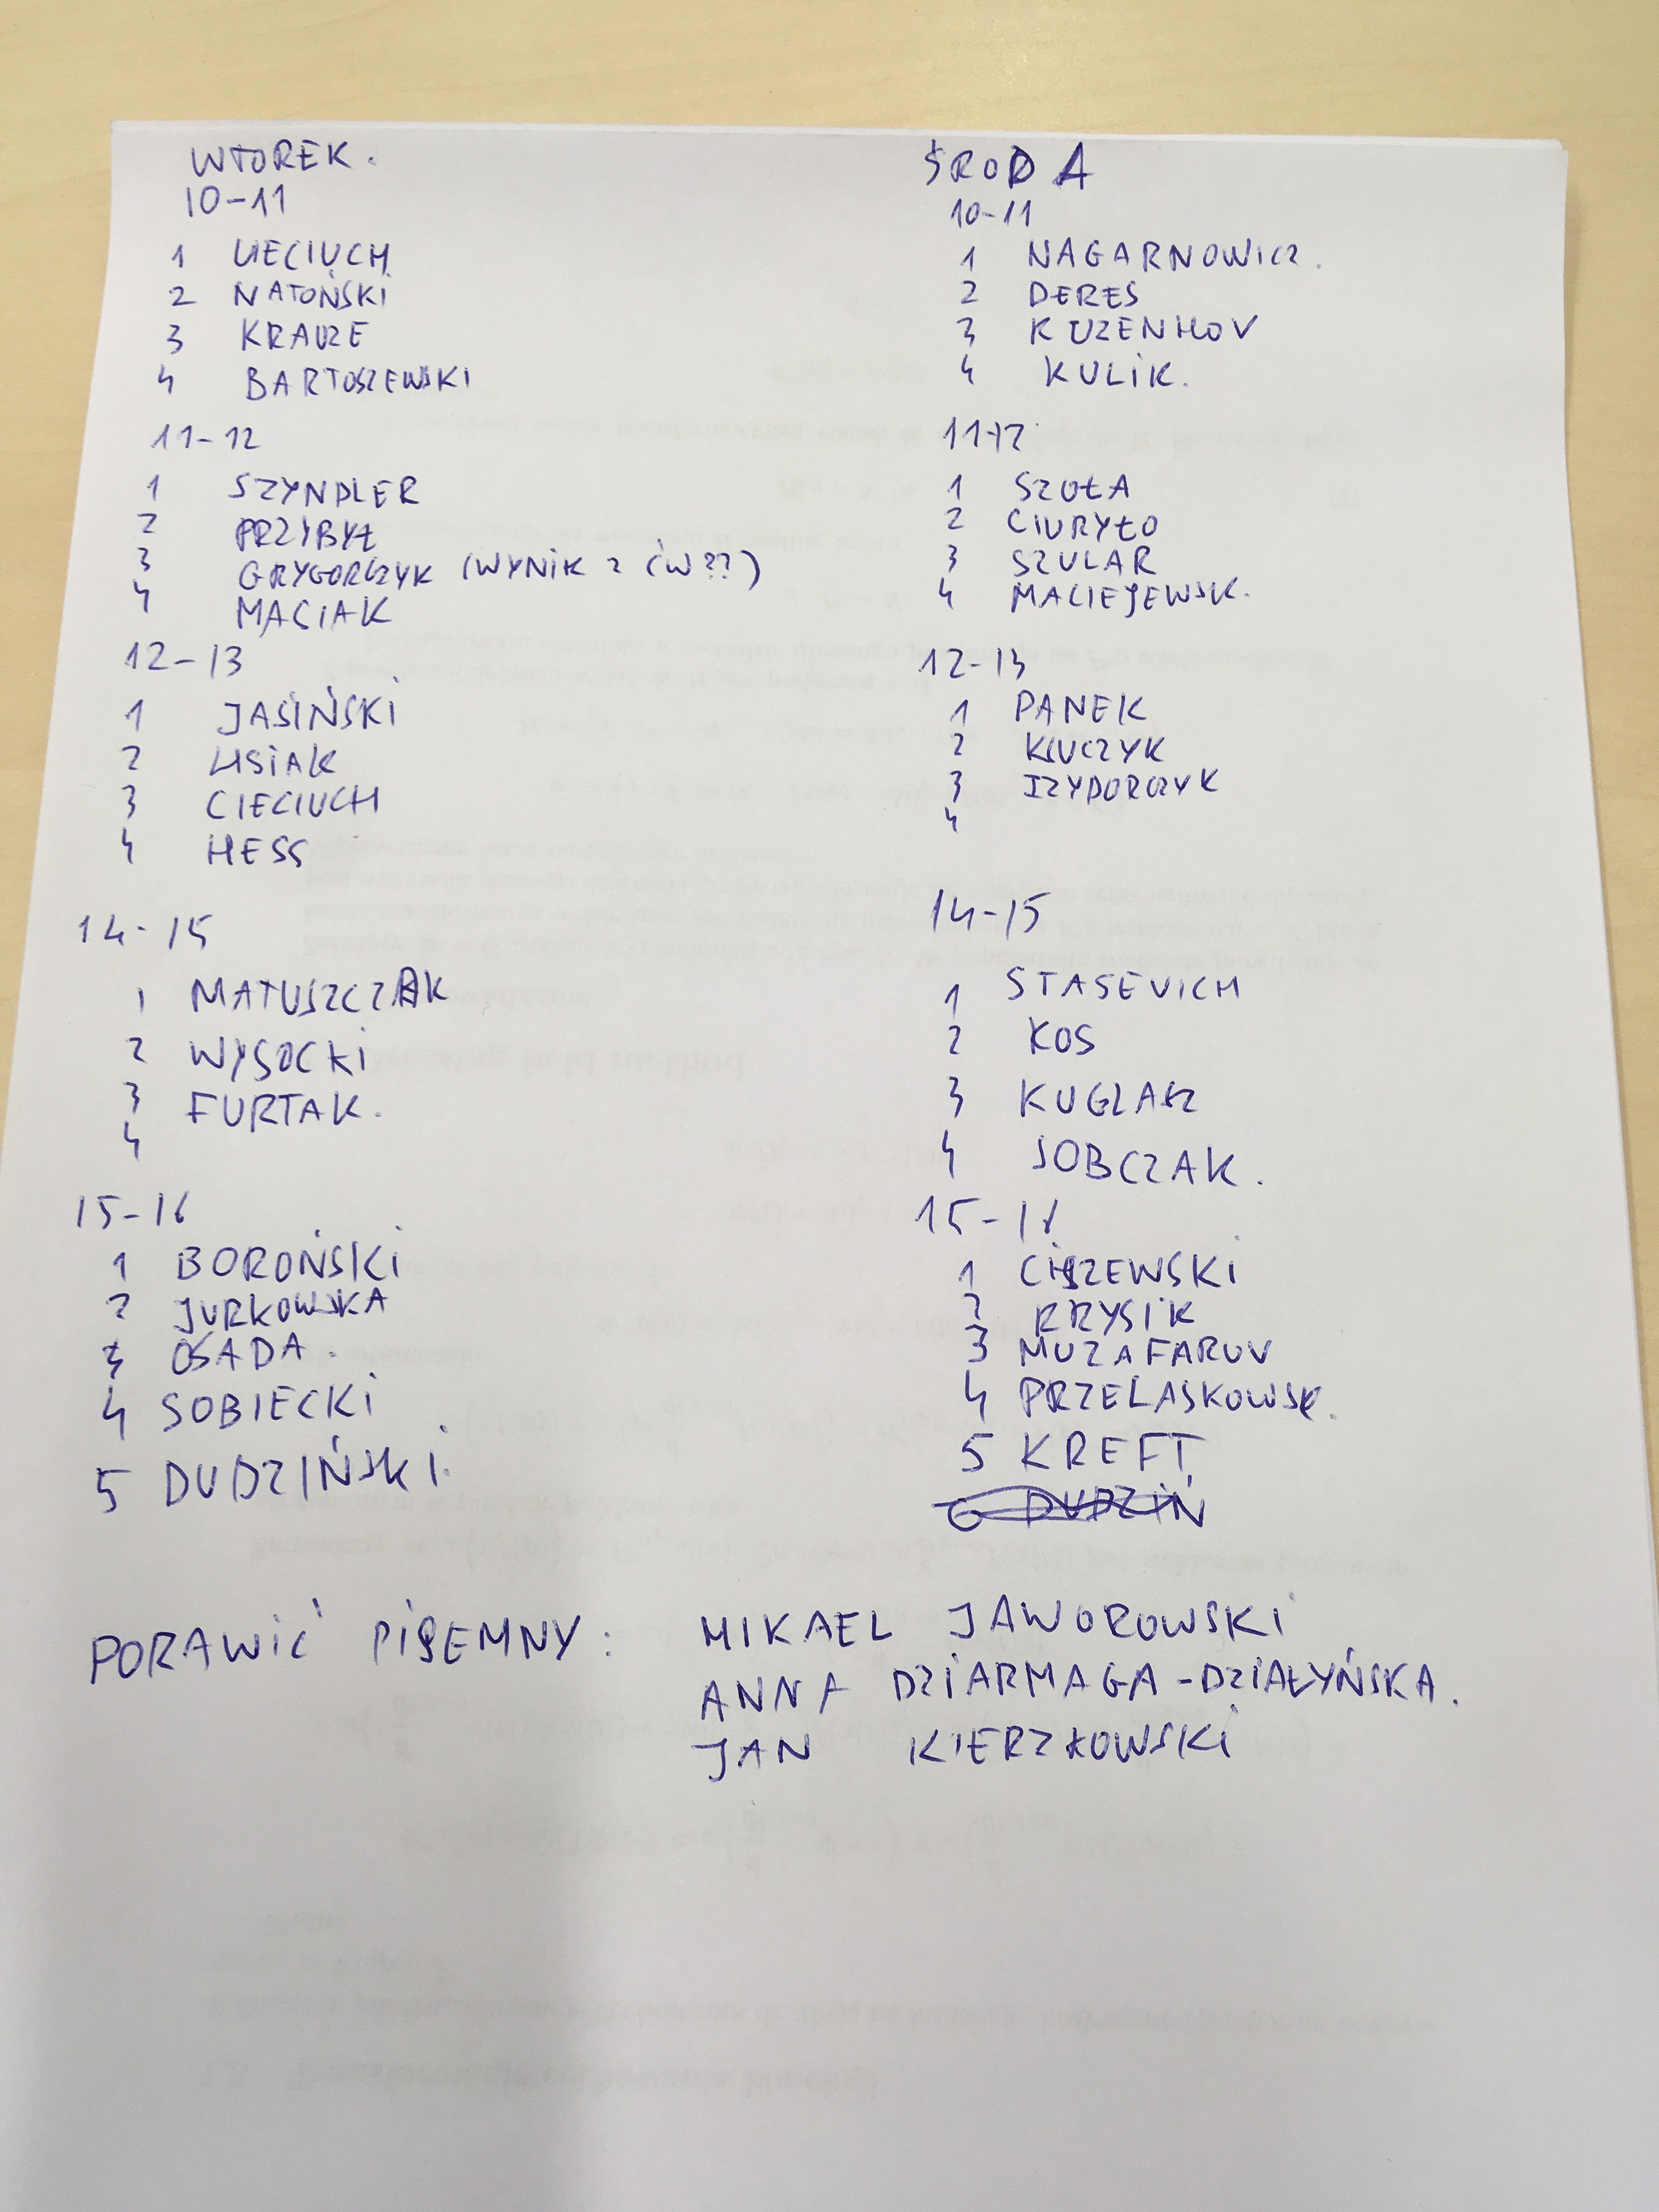 WTOREK.
10-11
1 LIECIUCH
2 NATOŃSKI
3 KRAUZE
4 BARTOSZEWSKI
11-12
1 SZYNDLER
2 PRZYBYŁ
3 GRYGORCZYK (WYNIK Z ĆW??)
4 MACIAK
12-13
1 JASIŃSKI
2 LISIAK
3 CIECIUCH
4 HESS
14-15
1 MATUSZCZAK
2 WYSOCKI
3 FURTAK.
4
15-16
1 BOROŃSKI
2 JURKOWSKA
3 OSADA.
4 SOBIECKI
5 DUDZIŃSKI
ŚRODA
10-11
1 NAGARNOWICZ.
2 DERES
3
4 KULIK.
11-12
1 SZOŁA
2 CIURYŁO
3 SZULAR
4 MACIEJEWSK.
12-13
1 PANEK
2 KLUCZYK
3 IZYDORCZYK
4
14-15
1 STASEVICH
2 KOS
3 KUGLARZ
4 SOBCZAK.
15-16
1 CISZEWSKI
2 KRYSIK
3 MUZAFAROV
4 PRZELASKOWSK.
5 KREFT
6 DUDZIŃ
PORAWIĆ PISEMNY: MIKAEL JAWOROWSKI
ANNA DZIARMAGA-DZIAŁYŃSKA.
JAN KIERZKOWSKI